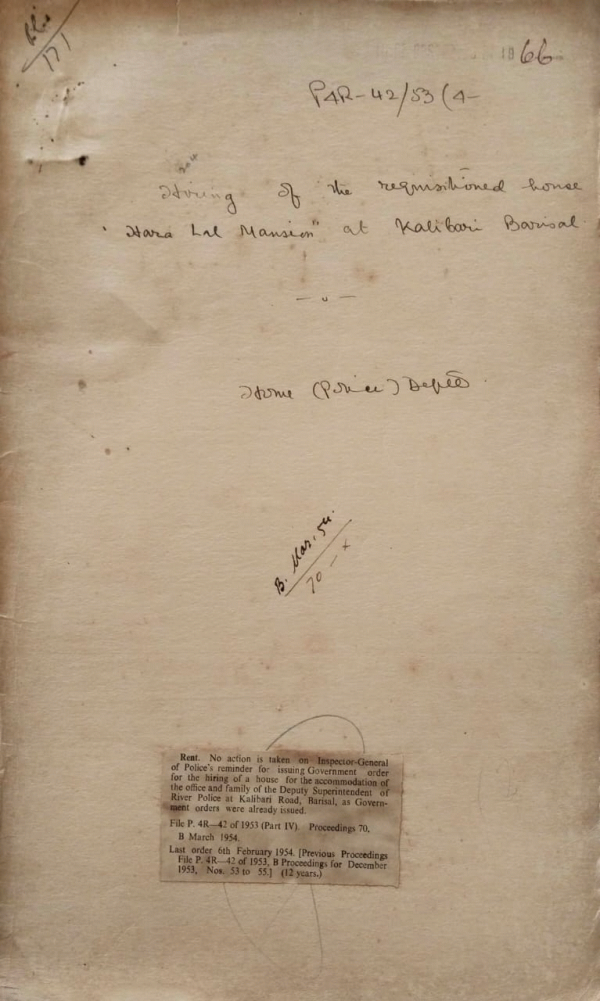 171
1966
P4R-42/53 (4-
Hiring of the requisitioned house
"Hara Lal Mansion" at Kalibari Barisal.
Home (Police) Deptt.
B. Mar. 54.
70-x
Rent. No action is taken on Inspector-General
of Police's reminder for issuing Government order
for the hiring of a house for the accommodation of
the office and family of the Deputy Superintendent of
River Police at Kalibari Road, Barisal, as Govern-
ment orders were already issued.
File P. 4R—42 of 1953 (Part IV). Proceedings 70,
B March 1954.
Last order 6th February 1954. [Previous Proceedings
File P. 4R—42 of 1953, B Proceedings for December
1953, Nos. 53 to 55.] (12 years.)